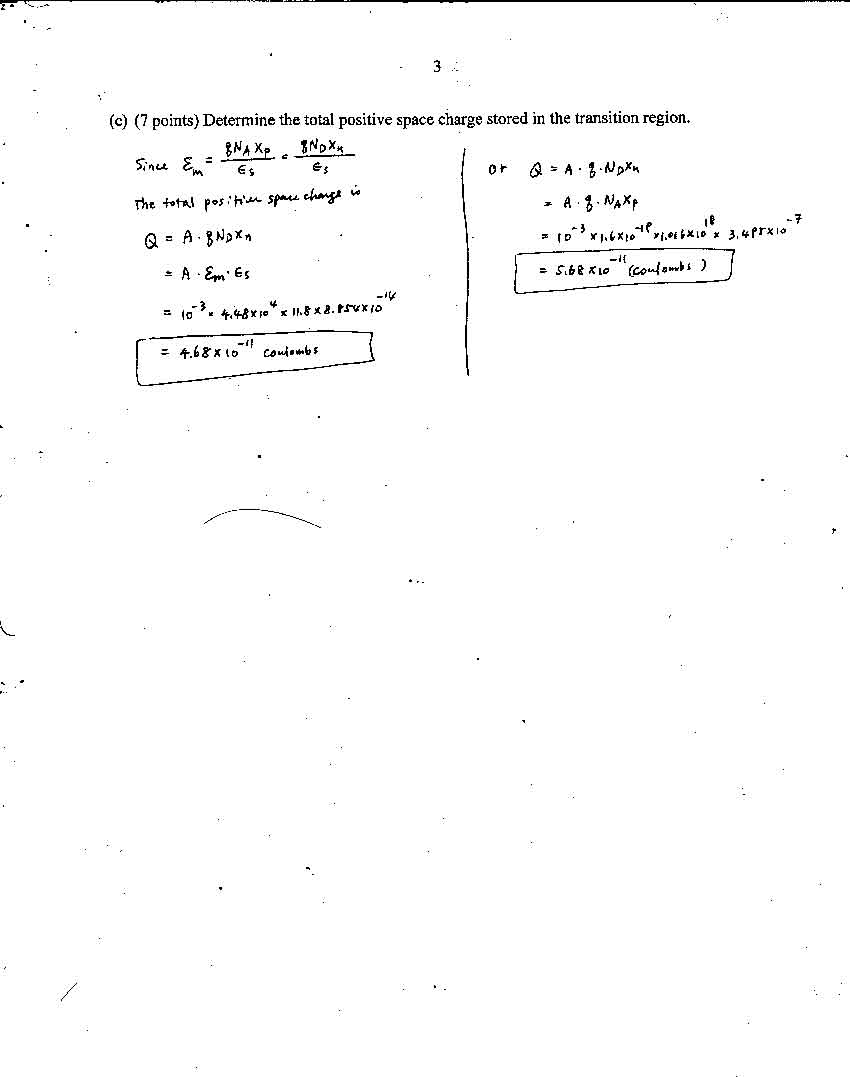 3
(c) (7 points) Determine the total positive space charge stored in the transition region.
Since Ɛm = qNAXP / ϵs = qNDXn / ϵs
The total positive space charge is
Q = A · qNDXn
= A · Ɛm · ϵs
= 10^-3 × 4.48×10^4 × 11.8 × 8.854×10^-14
= 4.68 × 10^-11 coulombs
or Q = A · q · NDXn
= A · q · NAXP
= 10^-3 × 1.6×10^-19 × 1.016×10^18 × 3.495×10^-7
= 5.68 × 10^-11 (coulombs)